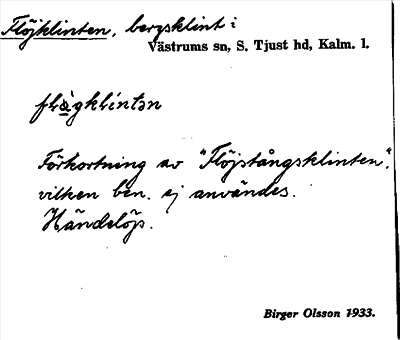 Flöjklinten, bergsklint i
Västrums sn, S. Tjust hd, Kalm. l.
Förkortning av "Flöjstångsklinten",
vilken ben. ej användes.
Händelöp.
Birger Olsson 1933.